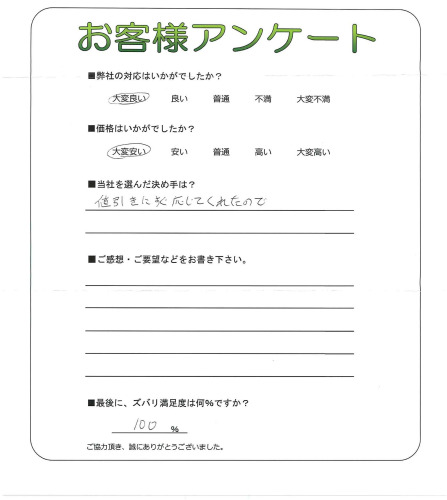 お客様アンケート
■弊社の対応はいかがでしたか?
大変良い 良い 普通 不満 大変不満
■価格はいかがでしたか?
大変安い 安い 普通 高い 大変高い
■当社を選んだ決め手は?
値引きに応じてくれたので
■ご感想・ご要望などをお書き下さい。
■最後に、ズバリ満足度は何%ですか?
100 %
ご協力頂き、誠にありがとうございました。